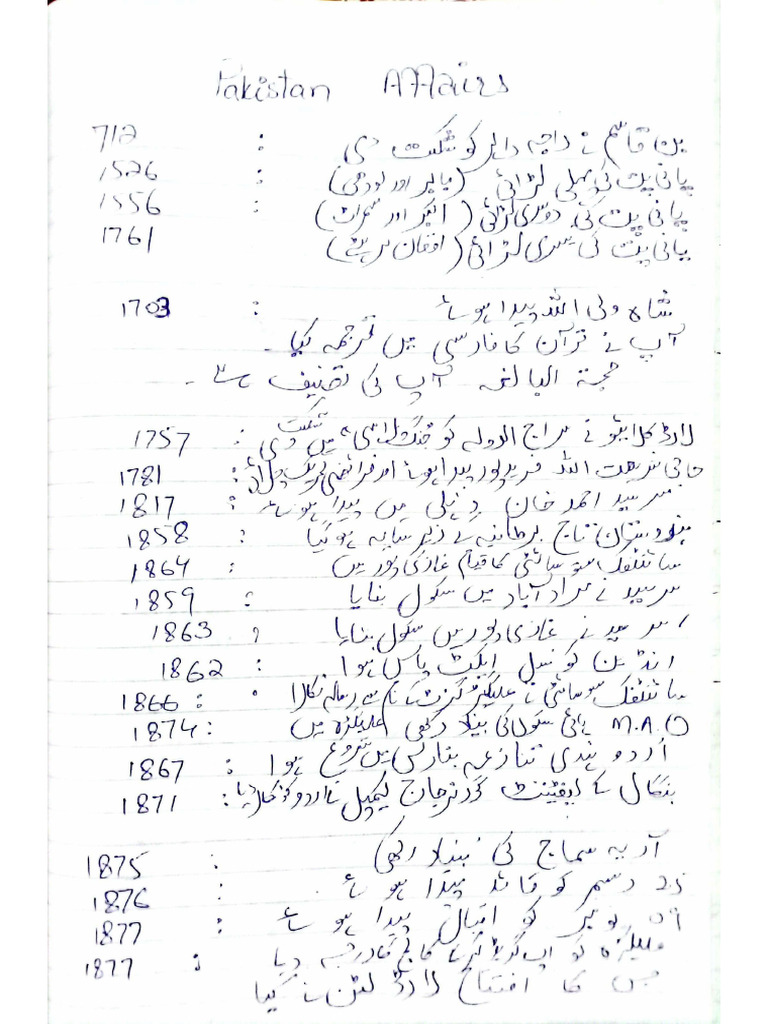 Pakistan Affairs
بن قاسم نے راجہ داہر کو شکست دی : 712
پانی پت کی پہلی لڑائی (بابر اور لودھی) : 1526
پانی پت کی دوسری لڑائی (اکبر اور ) : 1556
پانی پت کی تیسری لڑائی (افغان مرہٹے) 1761
شاہ ولی اللہ پیدا ہوئے : 1703
آپ نے قرآن کا فارسی میں ترجمہ کیا ۔
حجۃ البالغہ آپ کی تصنیف ہے ۔
لارڈ کلائیو نے سراج الدولہ کو جنگ پلاسی میں شکست دی : 1757
حاجی شریعت اللہ فریدپور پیدا ہوئے اور فرائضی تحریک چلائی : 1781
سرسید احمد خان دہلی میں پیدا ہوئے : 1817
ہندوستان تاج برطانیہ کے زیر سایہ ہو گیا : 1858
سائنٹفک سوسائٹی کا قیام غازی پور میں : 1864
سرسید نے مراد آباد میں سکول بنایا : 1859
سرسید نے غازی پور میں سکول بنایا : 1863
انڈین کونسل ایکٹ پاس ہوا : 1862
سائنٹفک سوسائٹی نے علیگڑھ گزٹ کے نام سے رسالہ نکالا : 1866
M.A.O ہائی سکول کی بنیاد رکھی علیگڑھ میں : 1874
اُردو ہندی تنازعہ بنارس میں شروع ہوا : 1867
بنگال کے لیفٹیننٹ گورنر جارج کیمپل نے اردو کو نکال دیا : 1871
آریہ سماج کی بنیاد رکھی : 1875
دسمبر کو قائد پیدا ہوئے : 1876
نومبر کو اقبال پیدا ہوئے : 1877
علیگڑھ کو اپ گریڈ کر کے کالج کا درجہ دیا : 1877
جس کا افتتاح لارڈ لٹن نے کیا